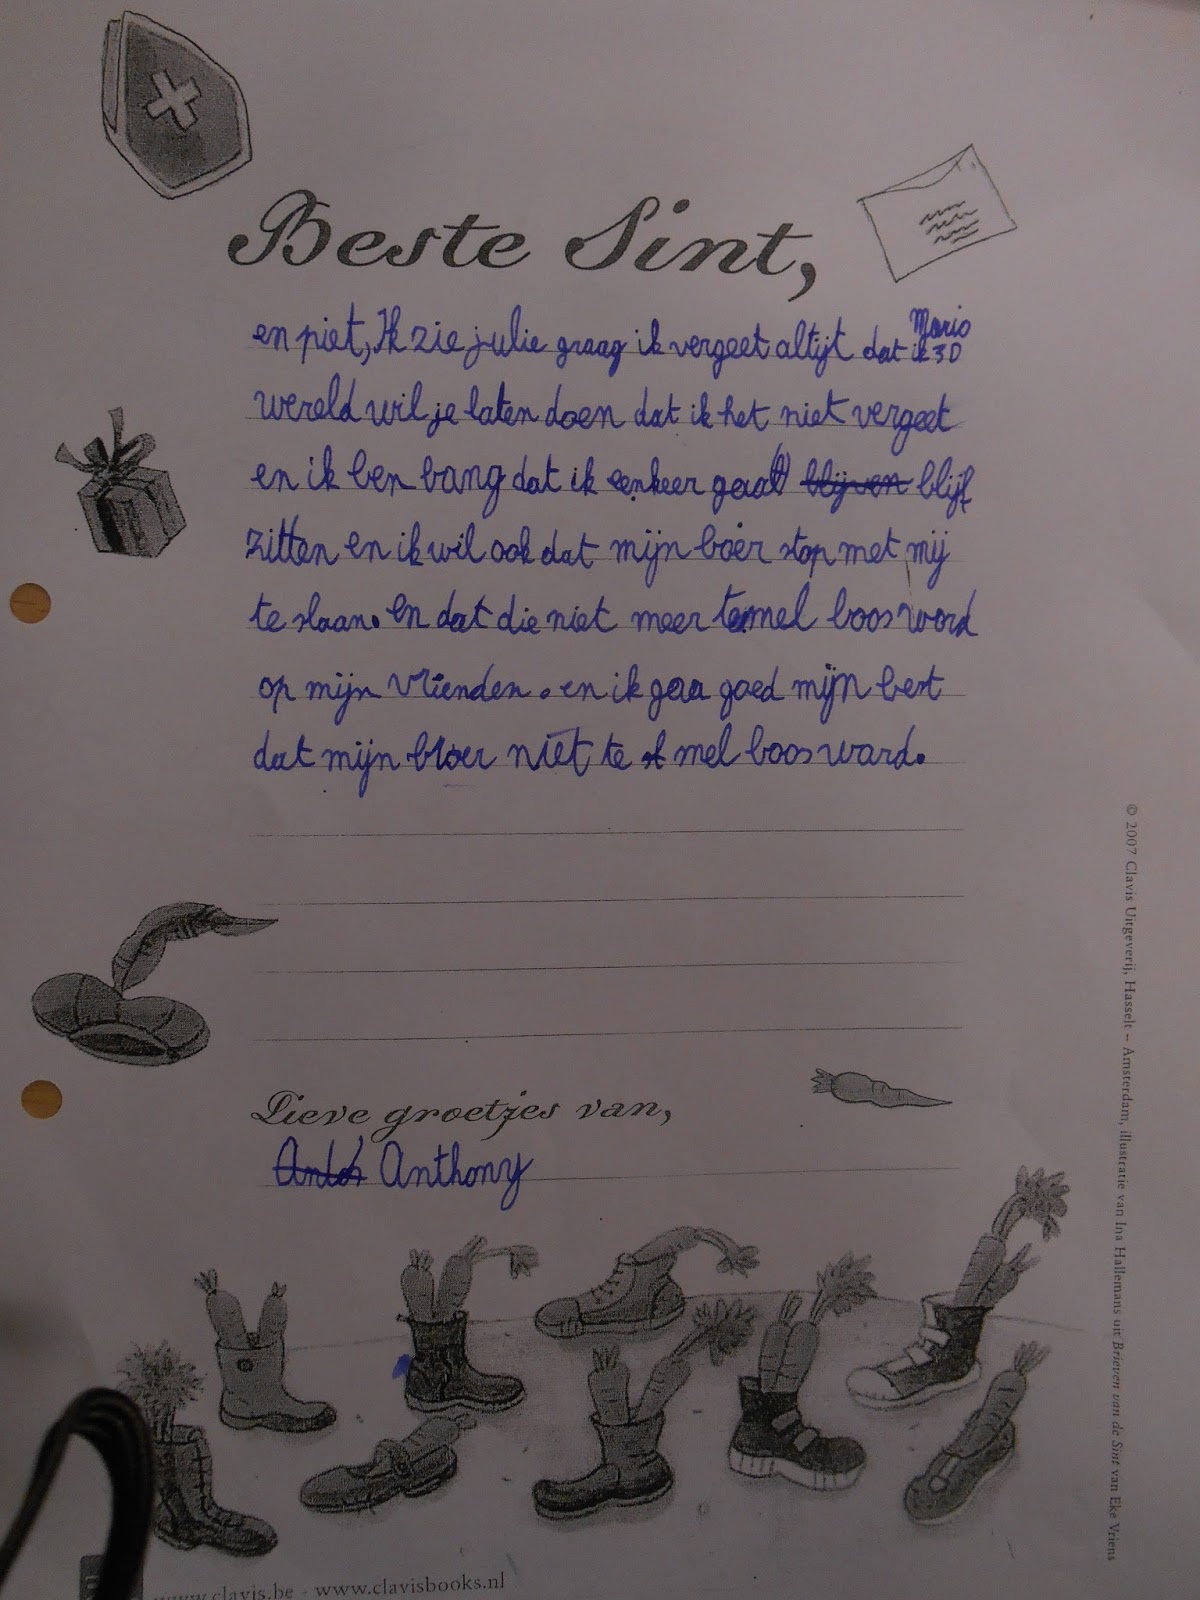 Beste Sint,
en piet, Ik zie julie graag ik vergeet altijt dat ik Mario 3D
wereld wil je laten doen dat ik het niet vergeet
en ik ben bang dat ik eenkeer blijf
zitten en ik wil ook dat mijn boer stop met mij
te slaan. en dat die niet meer te mel boos word
op mijn vrienden. en ik gaa goed mijn bert
dat mijn bloer niet te mel boos ward.
Lieve groetjes van,
Anthony
© 2007 Clavis Uitgeverij, Hasselt – Amsterdam, illustratie van Ina Hallemans uit Brieven van de Sint van Eke Vriens
www.clavis.be - www.clavisbooks.nl